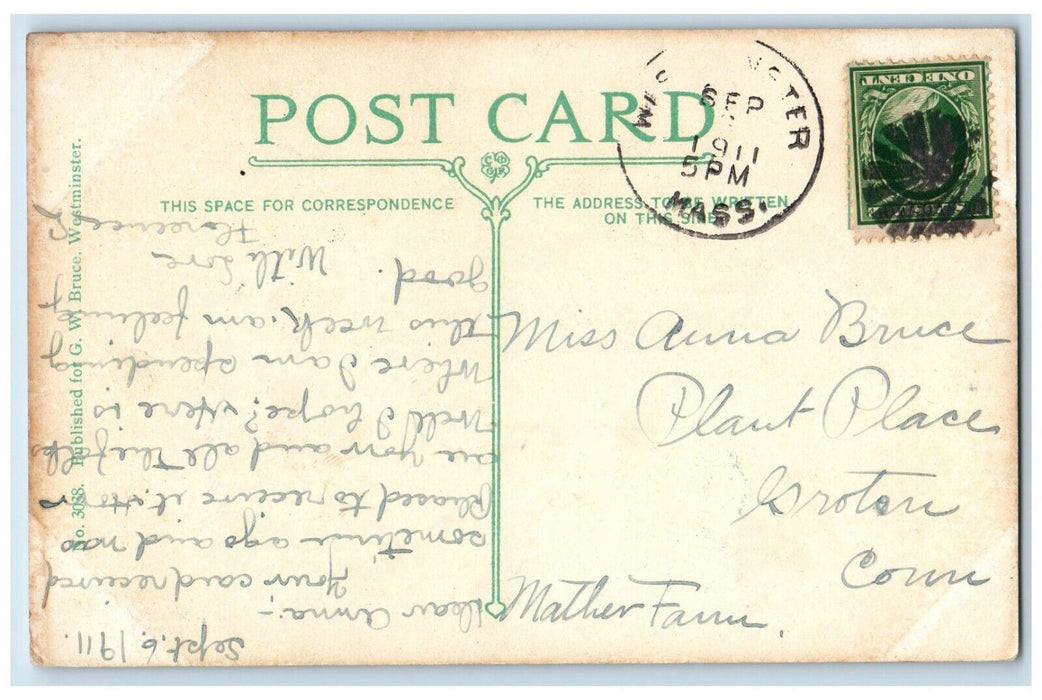 POST CARD
THIS SPACE FOR CORRESPONDENCE
THE ADDRESS TO BE WRITTEN
ON THIS SIDE
No. 3038. Published for G. W. Bruce, Westminster.
MINSTER
SEP
1911
5 PM
MASS.
ONE CENT
Miss Anna Bruce
Plant Place
Groton
Conn
Mather Farm.
Sept. 6, 1911.
Dear Anna:-
Your card received
sometime ago and was
pleased to receive it. How
are you and all the folks
Well I hope? Here is
where I am spending
this week. am feeling
good.
With Love
Florence